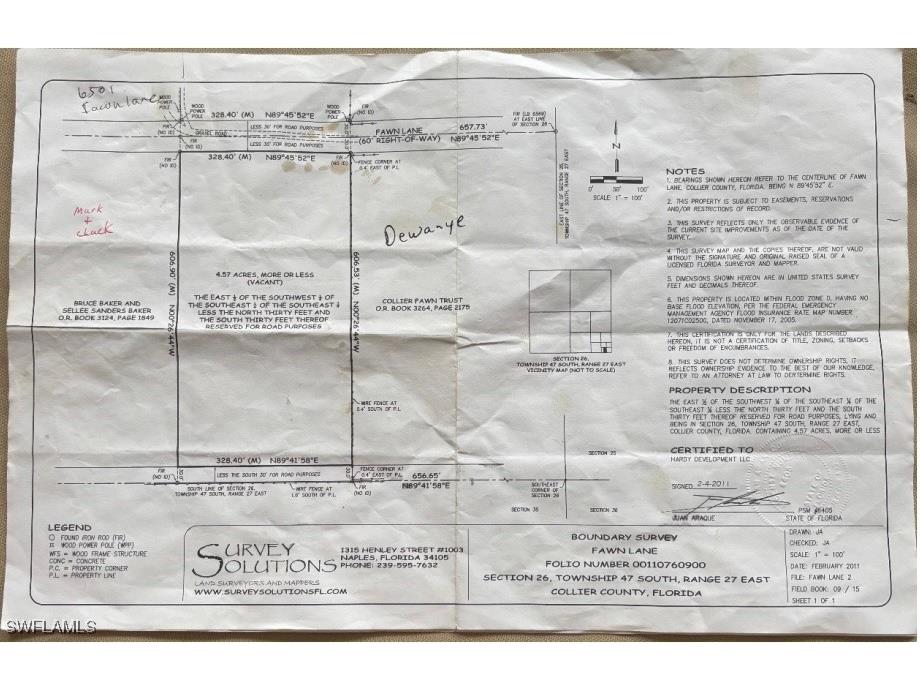 6501
Fawn lane
WOOD
POWER
POLE
WOOD
POWER
POLE
328.40' (M) N89°45'52"E
WOOD
POWER
POLE
FIR
(NO ID)
FIR
(NO ID)
GRAVEL ROAD
LESS 30' FOR ROAD PURPOSES
LESS 30' FOR ROAD PURPOSES
30.0'
30.0'
FAWN LANE
(60' RIGHT-OF-WAY)
657.73'
N89°45'52"E
FIR (LB 6569)
AT EAST LINE
OF SECTION 26
FIR
(NO ID)
328.40' (M) N89°45'52"E
FIR
(NO ID)
FENCE CORNER AT
0.4' EAST OF P.L.
EAST LINE OF SECTION 26,
TOWNSHIP 47 SOUTH, RANGE 27 EAST
N
0' 50' 100'
SCALE: 1" = 100'
Mark
+
chuck
Dewanye
606.90' (M) N00°26'49"W
606.53' (M) N00°26'44"W
4.57 ACRES, MORE OR LESS
(VACANT)
THE EAST ½ OF THE SOUTHWEST ¼ OF
THE SOUTHEAST ¼ OF THE SOUTHEAST ¼
LESS THE NORTH THIRTY FEET AND
THE SOUTH THIRTY FEET THEREOF
RESERVED FOR ROAD PURPOSES
BRUCE BAKER AND
SELLEE SANDERS BAKER
O.R. BOOK 3124, PAGE 1849
COLLIER FAWN TRUST
O.R. BOOK 3264, PAGE 2175
SECTION 26,
TOWNSHIP 47 SOUTH, RANGE 27 EAST
VICINITY MAP (NOT TO SCALE)
WIRE FENCE AT
0.4' SOUTH OF P.L.
328.40' (M) N89°41'58"E
FIR
(NO ID)
30.0'
LESS THE SOUTH 30' FOR ROAD PURPOSES
30.0'
FENCE CORNER AT
0.4' EAST OF P.L.
656.65'
N89°41'58"E
SOUTH LINE OF SECTION 26,
TOWNSHIP 47 SOUTH, RANGE 27 EAST
WIRE FENCE AT
1.6' SOUTH OF P.L.
FIR
(NO ID)
SECTION 25
SOUTHEAST
CORNER OF
SECTION 26
SECTION 35
SECTION 36
NOTES
1. BEARINGS SHOWN HEREON REFER TO THE CENTERLINE OF FAWN
LANE, COLLIER COUNTY, FLORIDA, BEING N 89°45'52" E.
2. THIS PROPERTY IS SUBJECT TO EASEMENTS, RESERVATIONS
AND/OR RESTRICTIONS OF RECORD.
3. THIS SURVEY REFLECTS ONLY THE OBSERVABLE EVIDENCE OF
THE CURRENT SITE IMPROVEMENTS AS OF THE DATE OF THE
SURVEY.
4. THIS SURVEY MAP AND THE COPIES THEREOF, ARE NOT VALID
WITHOUT THE SIGNATURE AND ORIGINAL RAISED SEAL OF A
LICENSED FLORIDA SURVEYOR AND MAPPER.
5. DIMENSIONS SHOWN HEREON ARE IN UNITED STATES SURVEY
FEET AND DECIMALS THEREOF.
6. THIS PROPERTY IS LOCATED WITHIN FLOOD ZONE D, HAVING NO
BASE FLOOD ELEVATION, PER THE FEDERAL EMERGENCY
MANAGEMENT AGENCY FLOOD INSURANCE RATE MAP NUMBER
12071C0250G, DATED NOVEMBER 17, 2005.
7. THIS CERTIFICATION IS ONLY FOR THE LANDS DESCRIBED
HEREON, IT IS NOT A CERTIFICATION OF TITLE, ZONING, SETBACKS
OR FREEDOM OF ENCUMBRANCES.
8. THIS SURVEY DOES NOT DETERMINE OWNERSHIP RIGHTS, IT
REFLECTS OWNERSHIP EVIDENCE TO THE BEST OF OUR KNOWLEDGE,
REFER TO AN ATTORNEY AT LAW TO DERTERMINE RIGHTS.
PROPERTY DESCRIPTION
THE EAST ½ OF THE SOUTHWEST ¼ OF THE SOUTHEAST ¼ OF THE
SOUTHEAST ¼ LESS THE NORTH THIRTY FEET AND THE SOUTH
THIRTY FEET THEREOF RESERVED FOR ROAD PURPOSES, LYING AND
BEING IN SECTION 26, TOWNSHIP 47 SOUTH, RANGE 27 EAST,
COLLIER COUNTY, FLORIDA. CONTAINING 4.57 ACRES, MORE OR LESS
CERTIFIED TO
HARDY DEVELOPMENT LLC
SIGNED 2-4-2011
JUAN ARAQUE
PSM #6405
STATE OF FLORIDA
LEGEND
○ FOUND IRON ROD (FIR)
¤ WOOD POWER POLE (WPP)
WFS = WOOD FRAME STRUCTURE
CONC = CONCRETE
P.C. = PROPERTY CORNER
P.L. = PROPERTY LINE
SURVEY
SOLUTIONS
LAND SURVEYORS AND MAPPERS
WWW.SURVEYSOLUTIONSFL.COM
1315 HENLEY STREET #1003
NAPLES, FLORIDA 34105
PHONE: 239-595-7632
BOUNDARY SURVEY
FAWN LANE
FOLIO NUMBER 00110760900
SECTION 26, TOWNSHIP 47 SOUTH, RANGE 27 EAST
COLLIER COUNTY, FLORIDA
DRAWN: JA
CHECKED: JA
SCALE: 1" = 100'
DATE: FEBRUARY 2011
FILE: FAWN LANE 2
FIELD BOOK: 09 / 15
SHEET 1 OF 1
SWFLAMLS